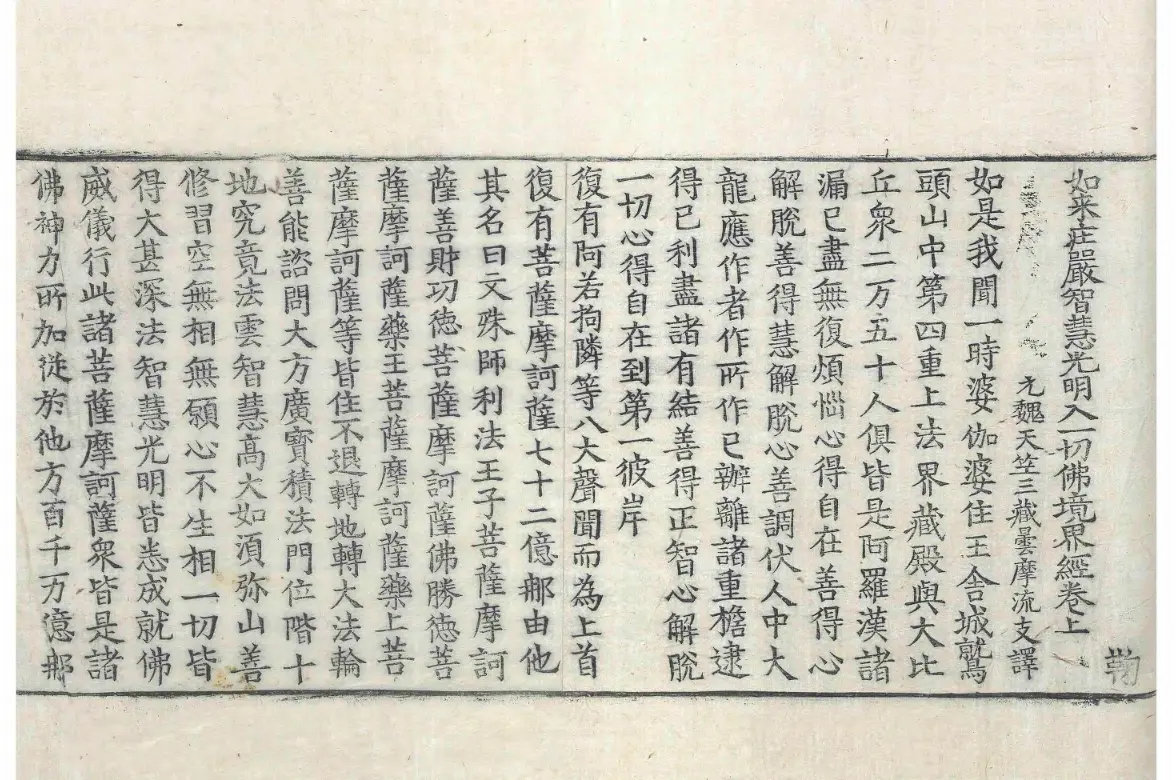 如来庄嚴智慧光明入一切佛境界經卷上
元魏天竺三藏曇摩流支譯
如是我聞一時婆伽婆住王舍城鷲
頭山中第四重上法界藏殿與大比
丘衆二万五十人俱皆是阿羅漢諸
漏已盡無復煩惱心得自在善得心
解脫善得慧解脫心善調伏人中大
龍應作者作所作已辦離諸重擔逮
得已利盡諸有結善得正智心解脫
一切心得自在到第一彼岸
復有阿若拘隣等八大聲聞而為上首
復有菩薩摩訶薩七十二億那由他
其名曰文殊師利法王子菩薩摩訶
薩善財功徳菩薩摩訶薩佛勝徳菩
薩摩訶薩藥王菩薩摩訶薩藥上菩
薩摩訶薩等皆住不退轉地轉大法輪
善能諮問大方廣寳積法門位階十
地究竟法雲智慧高大如湏弥山善
修習空無相無願心不生相一切皆
得大甚深法智慧光明皆悉成就佛
威儀行此諸菩薩摩訶薩衆皆是諸
佛神力所加從於他方百千万億那